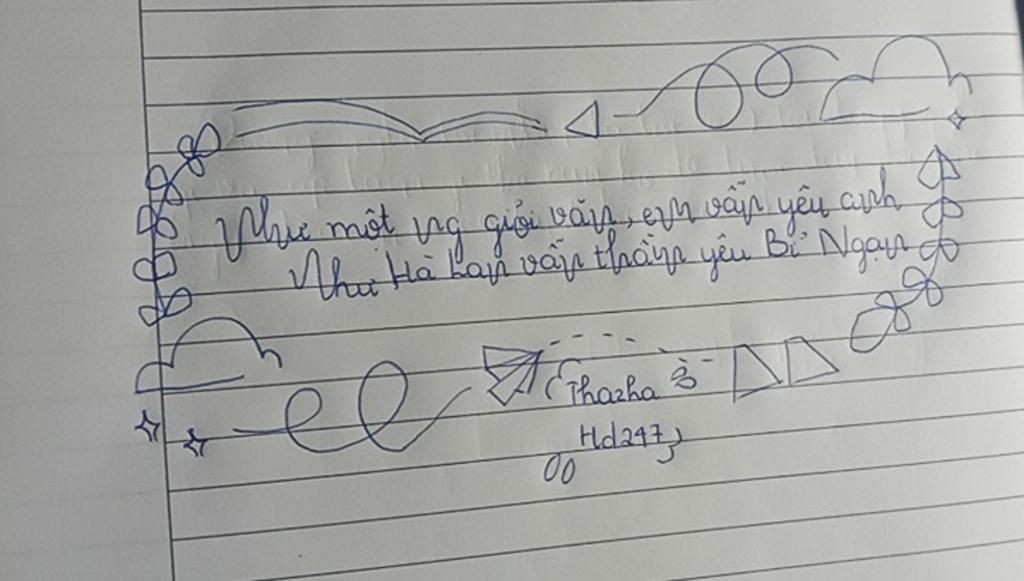 Như một ng giỏi văn, em vẫn yêu anh
Như Hà Lan vẫn thầm yêu Bỉ Ngạn
(Thazha ở
Hd247)